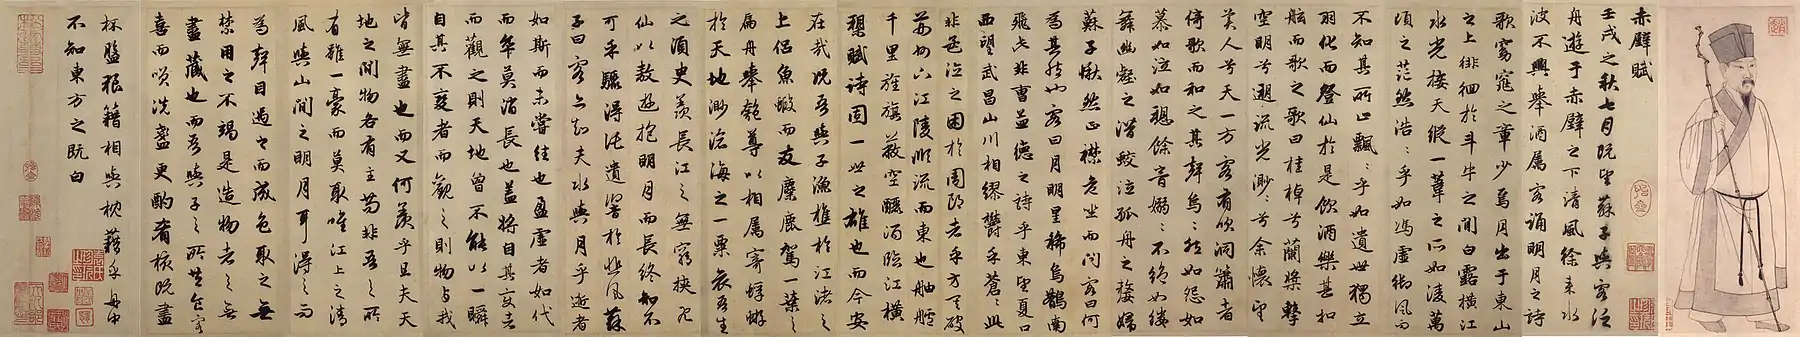 赤壁賦
壬戌之秋七月既望蘇子與客泛
舟遊于赤壁之下清風徐來水
波不興舉酒属客誦明月之詩
歌窈窕之章少焉月出于東山
之上徘徊於斗牛之間白露橫江
水光接天縱一葦之所如淩萬
頃之茫然浩々乎如馮虛御風而
不知其所止飄々乎如遺世獨立
羽化而登仙於是飲酒樂甚扣
舷而歌之歌曰桂棹兮蘭槳擊
空明兮遡流光渺々兮余懷望
美人兮天一方客有吹洞簫者
倚歌而和之其聲嗚々然如怨如
慕如泣如訴餘音嫋々不絕如縷
舞幽壑之潛蛟泣孤舟之嫠婦
蘇子愀然正襟危坐而問客曰何
為其然也客曰月明星稀烏鵲南
飛此非曹孟德之詩乎東望夏口
西望武昌山川相繆鬱乎蒼々此
非孟德之困於周郎者乎方其破
荊州下江陵順流而東也舳艫
千里旌旗蔽空釃酒臨江橫
槊賦詩固一世之雄也而今安
在哉況吾與子漁樵於江渚之
上侶魚蝦而友麋鹿駕一葉之
扁舟舉匏尊以相属寄蜉蝣
於天地渺滄海之一粟哀吾生
之須臾羨長江之無窮挾飛
仙以遨遊抱明月而長終知不
可乎驟得託遺響於悲風蘇
子曰客亦知夫水與月乎逝者
如斯而未嘗往也盈虛者如代
而卒莫消長也蓋將自其變者
而觀之則天地曾不能以一瞬
自其不變者而觀之則物与我
皆無盡也而又何羨乎且夫天
地之間物各有主苟非吾之所
有雖一毫而莫取唯江上之清
風與山間之明月耳得之而
為聲目遇之而成色取之無
禁用之不竭是造物者之無
盡藏也而吾與子之所共食客
喜而笑洗盞更酌肴核既盡
杯盤狼籍相與枕藉乎舟中
不知東方之既白